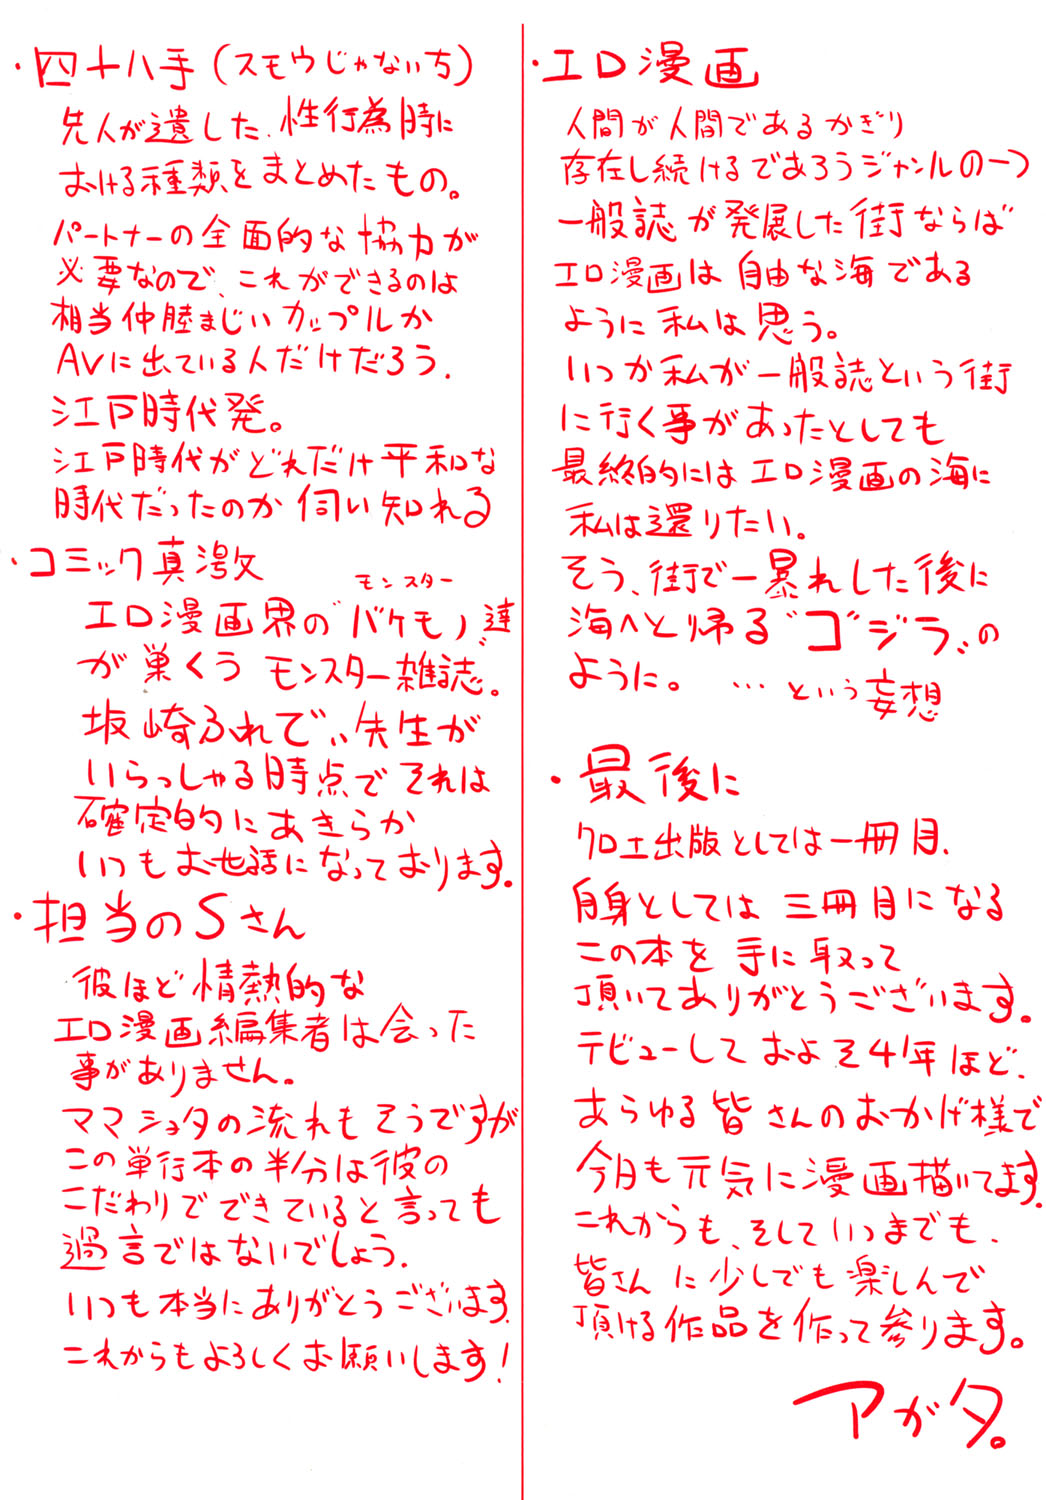 ・四十八手（スモウじゃない方）
先人が遺した、性行為時に
おける種類をまとめたもの。
パートナーの全面的な協力が
必要なので、これができるのは
相当仲睦まじいカップルか
AVに出ている人だけだろう.
江戸時代発。
江戸時代がどれだけ平和な
時代だったのか伺い知れる
・コミック真激
モンスター
エロ漫画界の"バケモノ達"
が巣くうモンスター雑誌。
坂崎ふれでぃ先生が
いらっしゃる時点でそれは
確定的にあきらか
いつもお世話になっております。
・担当のSさん
彼ほど情熱的な
エロ漫画編集者は会った
事がありません。
ママショタの流れもそうですが
この単行本の半分は彼の
こだわりでできていると言っても
過言ではないでしょう.
いつも本当にありがとうございます.
これからもよろしくお願いします！
・エロ漫画
人間が人間であるかぎり
存在し続けるであろうジャンルの一つ
一般誌が発展した街ならば
エロ漫画は自由な海である
ように私は思う。
いつか私が一般誌という街
に行く事があったとしても
最終的にはエロ漫画の海に
私は還りたい。
そう、街で一暴れした後に
海へと帰る"ゴジラ"の
ように。 …という妄想
・最後に
クロエ出版としては一冊目.
自身としては三冊目になる
この本を手に取って
頂いてありがとうございます。
デビューしておよそ4年ほど、
あらゆる皆さんのおかげ様で
今月も元気に漫画描いてます.
これからも、そしていつまでも、
皆さんに少しでも楽しんで
頂ける作品を作って参ります。
アガタ。